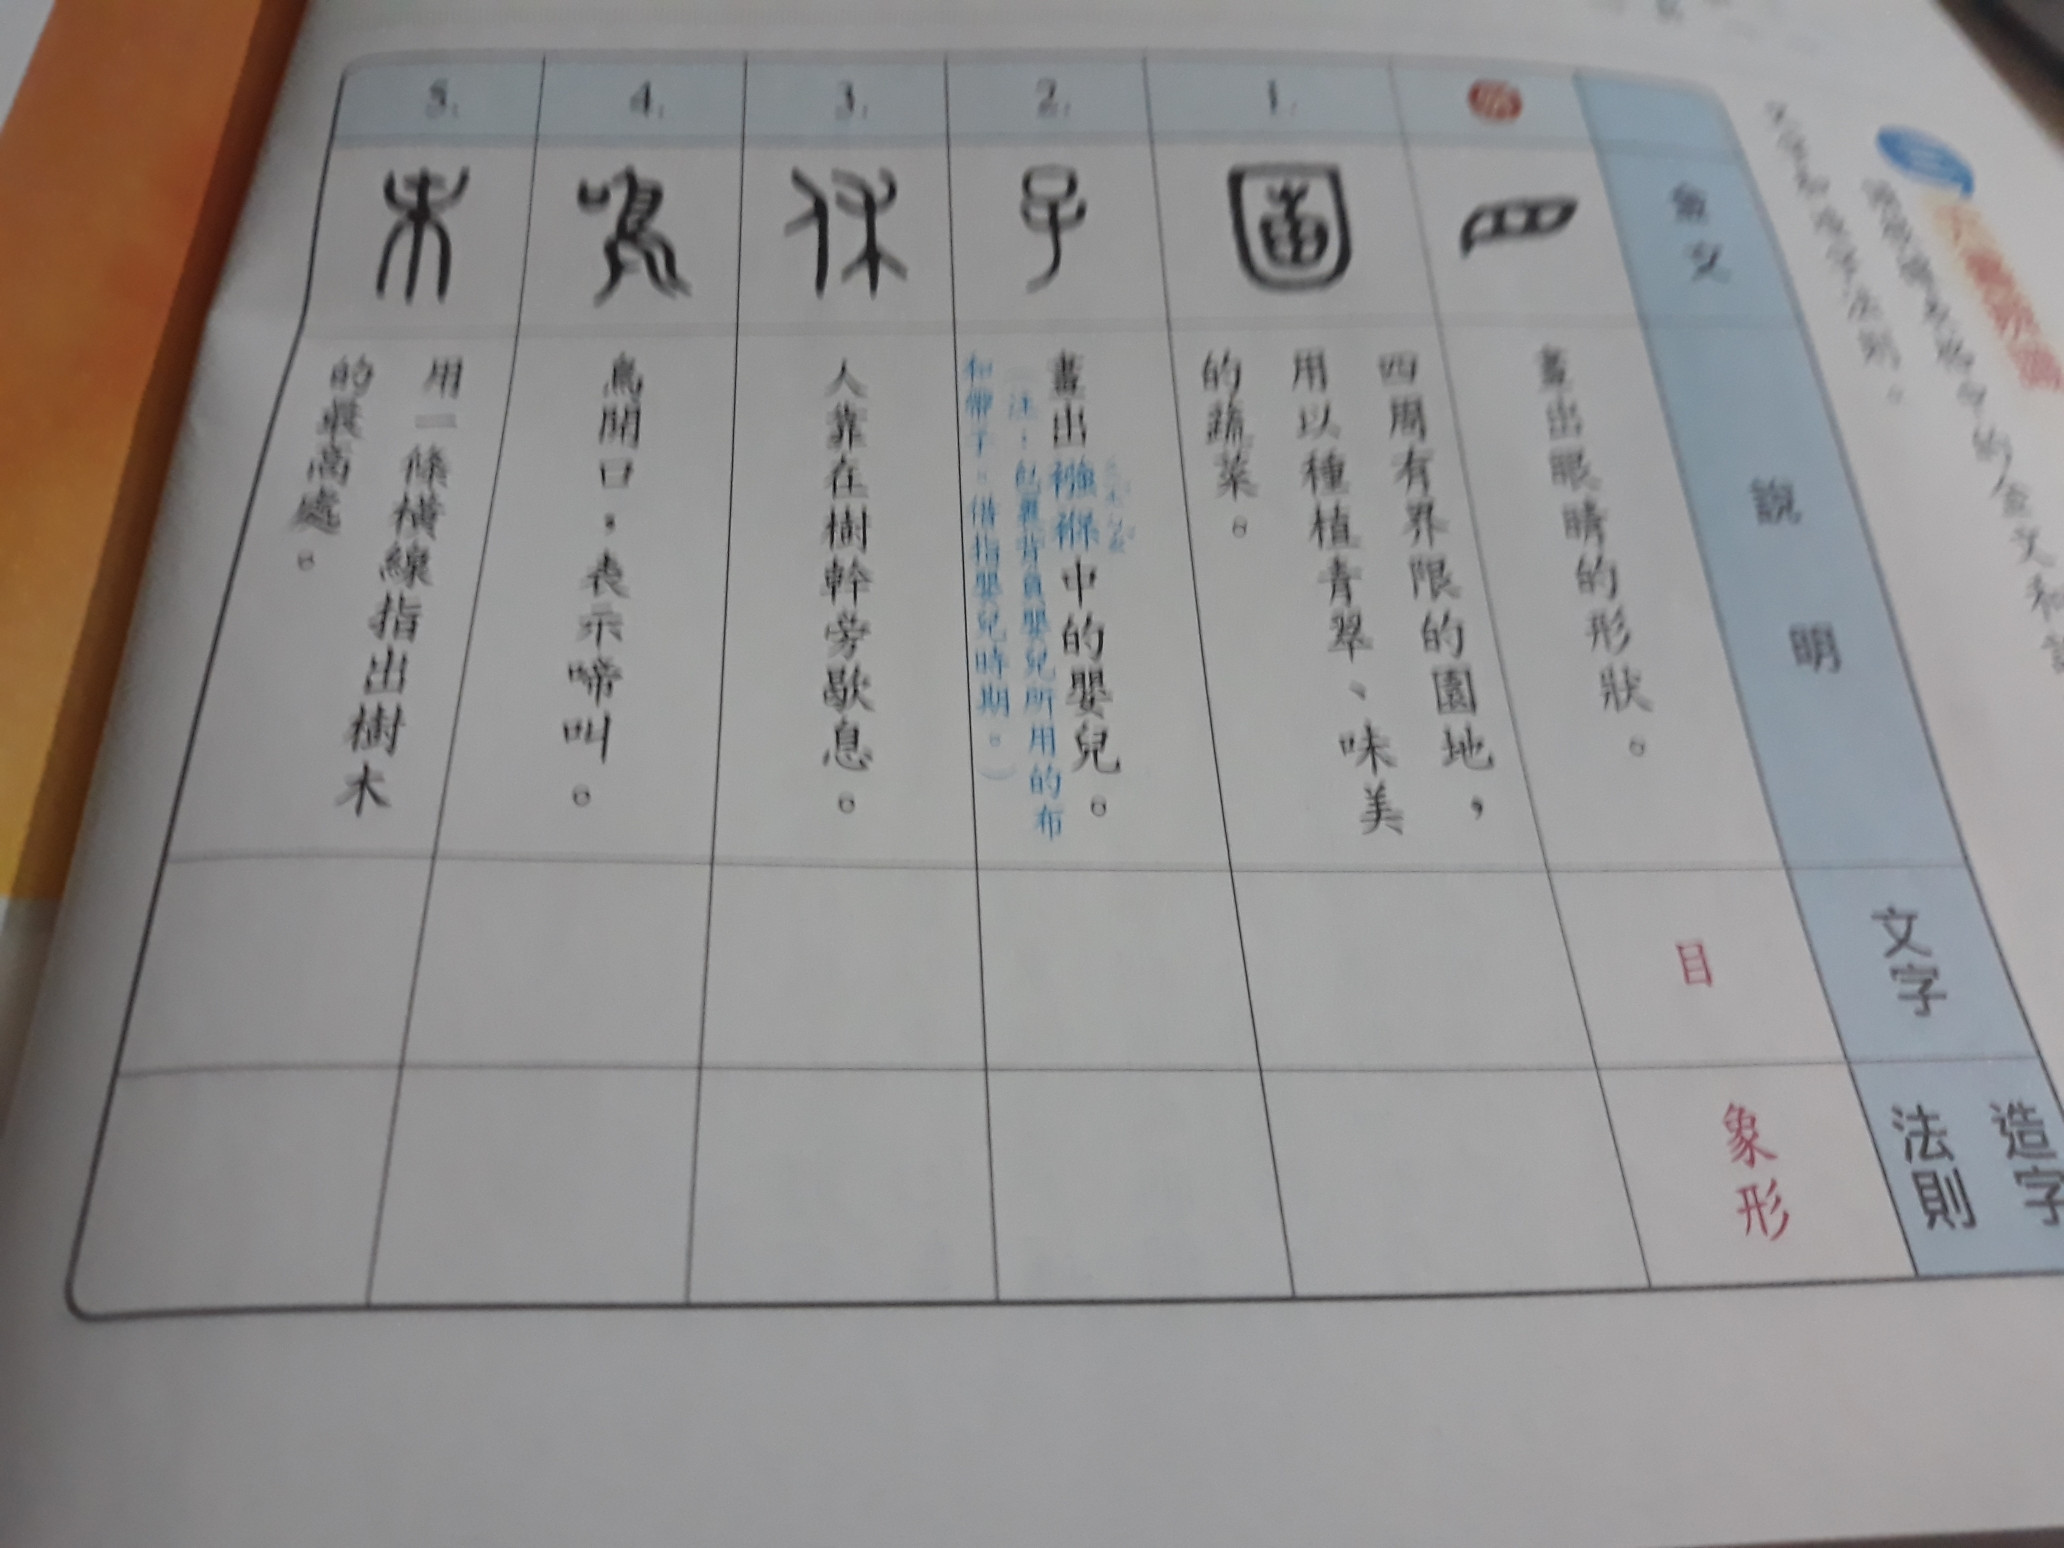 金文
說明
文字
造字
法則
畫出眼睛的形狀。
目
象形
1.
四周有界限的園地,
用以種植青翠、味美
的蔬菜。
2.
子
畫出襁褓中的嬰兒。
(注:包裹背負嬰兒所用的布
和帶子。借指嬰兒時期。)
3.
人靠在樹幹旁歇息。
4.
鳥開口,表示啼叫。
5.
用一條橫線指出樹木
的最高處。